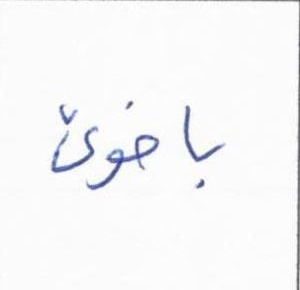 باخوێ